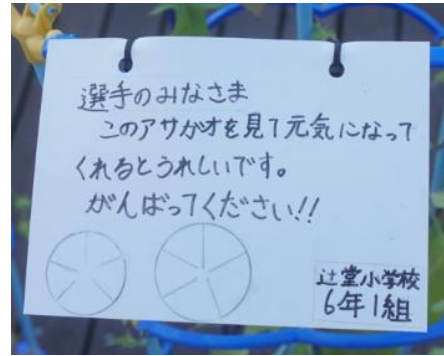 選手のみなさま
このアサガオを見て元気になって
くれるとうれしいです。
がんばってください!!
辻堂小学校
6年1組